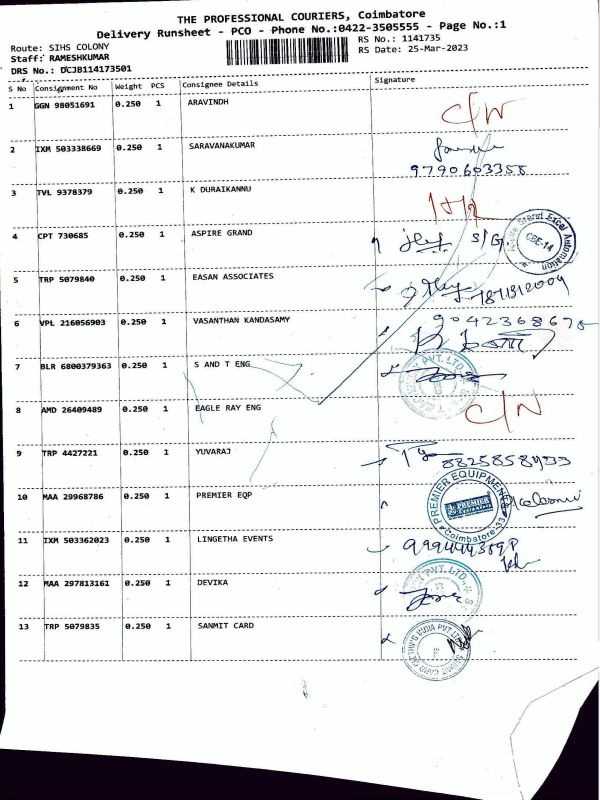 THE PROFESSIONAL COURIERS, Coimbatore
Delivery Runsheet - PCO - Phone No.:0422-3505555 - Page No.:1
Route: SIHS COLONY
RS No.: 1141735
Staff: RAMESHKUMAR
RS Date: 25-Mar-2023
DRS No.: DCJB114173501
S No Consignment No Weight PCS Consignee Details Signature
1 GGN 98051691 0.250 1 ARAVINDH
C/N
2 IXM 503338669 0.250 1 SARAVANAKUMAR
9790603358
3 TVL 9378379 0.250 1 K DURAIKANNU
4 CPT 730685 0.250 1 ASPIRE GRAND
S/G.
Excel Automation
CBE-14
5 TRP 5079840 0.250 1 EASAN ASSOCIATES
6 VPL 216056903 0.250 1 VASANTHAN KANDASAMY
7 BLR 6800379363 0.250 1 S AND T ENG
PVT. LTD.
8 AMD 26409489 0.250 1 EAGLE RAY ENG
C/N
9 TRP 4427221 0.250 1 YUVARAJ
10 MAA 29968786 0.250 1 PREMIER EQP
PREMIER EQUIPMENTS
PREMIER
Coimbatore-33
11 IXM 503362023 0.250 1 LINGETHA EVENTS
12 MAA 297813161 0.250 1 DEVIKA
PVT. LTD.
13 TRP 5079835 0.250 1 SANMIT CARD
INDIA PVT LTD